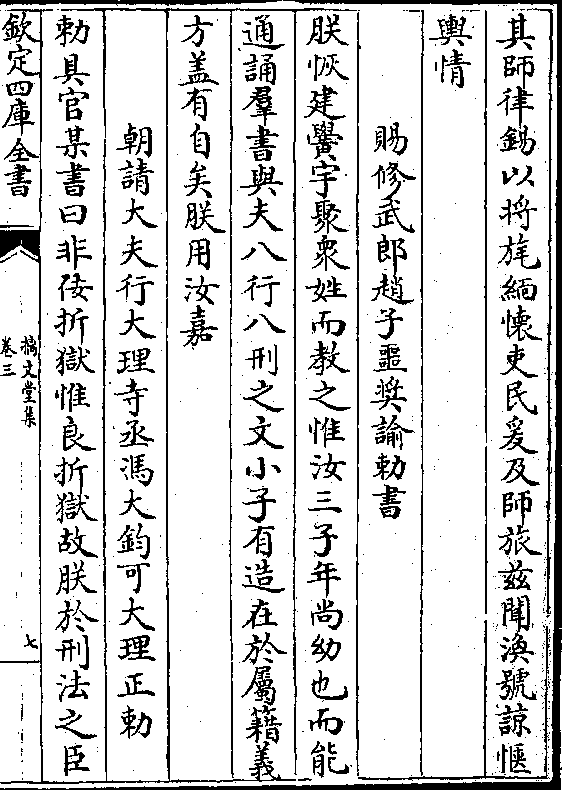 其師律錫以將旄緬懷吏民爰及師旅兹聞渙號諒愜
輿情
賜修武郎趙子噩奬諭勅書
朕恢建黌宇聚衆姓而教之惟汝三子年尚幼也而能
通誦羣書與夫八行八刑之文小子有造在於屬籍義
方盖有自矣朕用汝嘉
朝請大夫行大理寺丞馮大鈞可大理正勅
勅具官某書曰非佞折獄惟良折獄故朕於刑法之臣
欽定四庫全書
摛文堂集
卷三
七